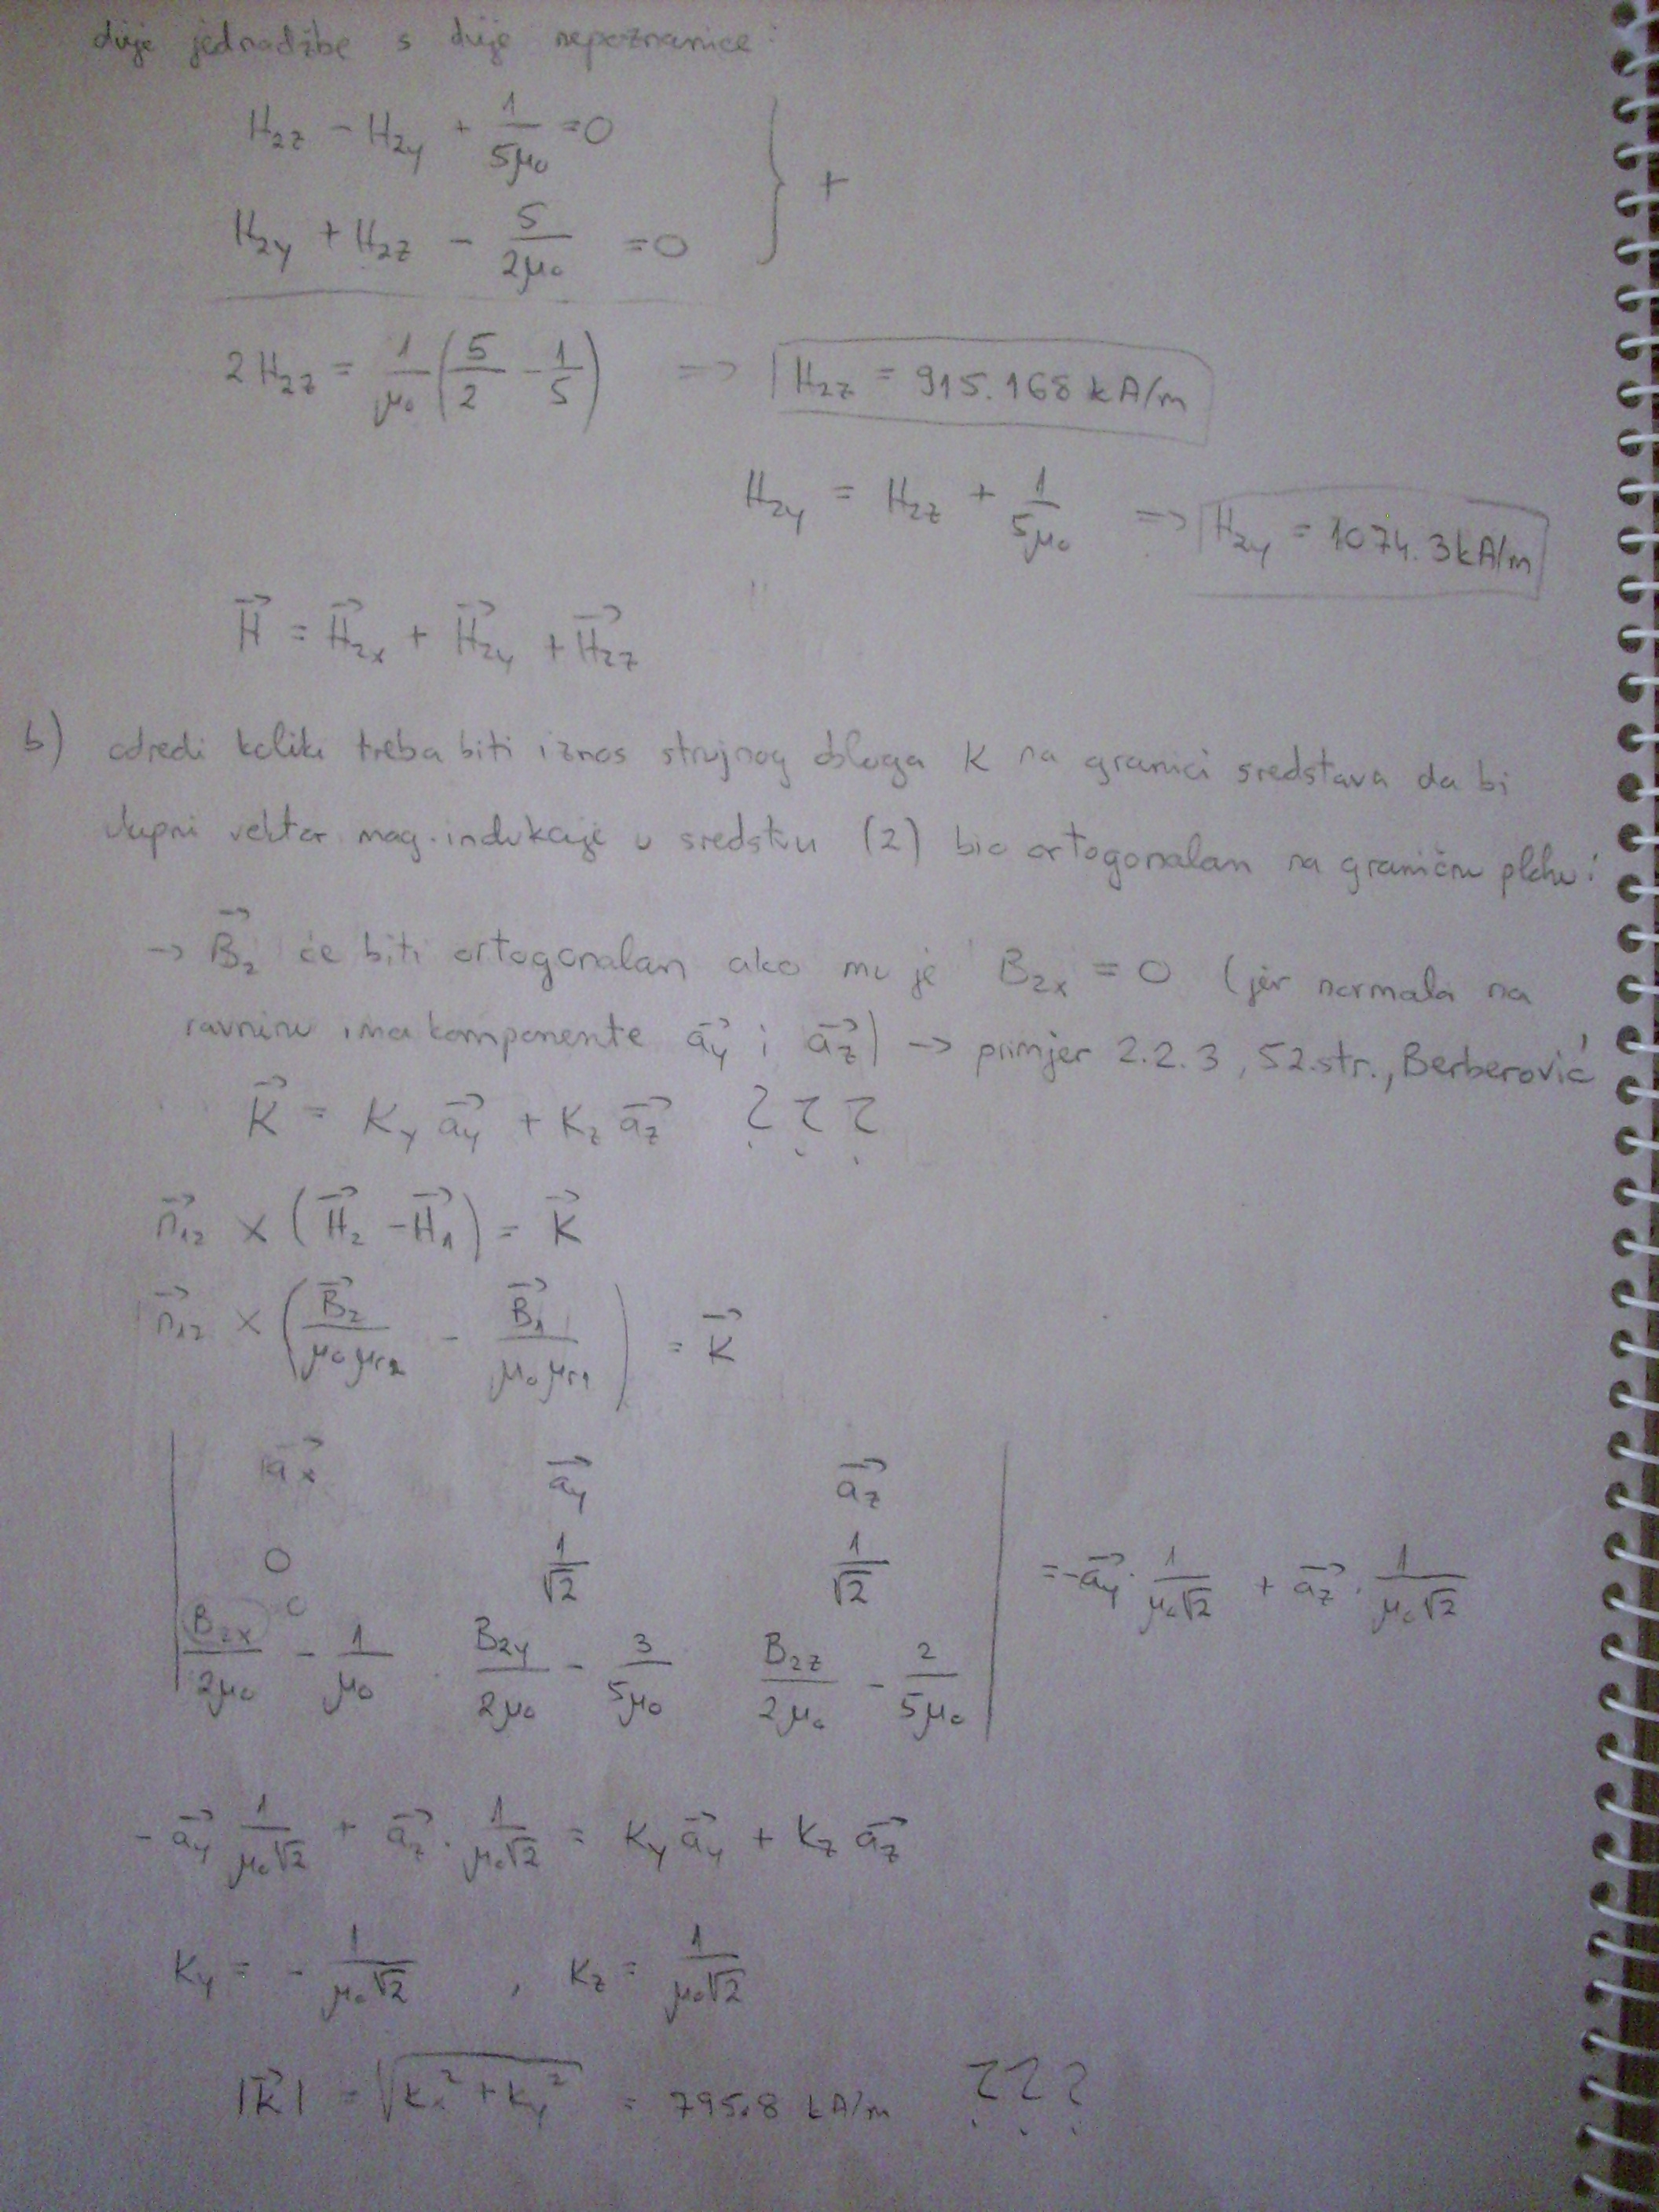 dvije jednadžbe s dvije nepoznanice:
H₂z − H₂y + 1/(5μ₀) = 0
H₂y + H₂z − 5/(2μ₀) = 0 } +
2H₂z = 1/μ₀ (5/2 − 1/5) => H₂z = 915.168 kA/m
H₂y = H₂z + 1/(5μ₀) => H₂y = 1074.3 kA/m
H⃗ = H⃗₂x + H⃗₂y + H⃗₂z
b) odredi koliki treba biti iznos strujnog obloga K na granici sredstava da bi
ukupni vektor mag. indukcije u sredstvu (2) bio ortogonalan na graničnu plohu:
→ B⃗₂ će biti ortogonalan ako mu je B₂x = 0 (jer normala na
ravninu ima komponente a⃗y i a⃗z) → primjer 2.2.3, 52.str., Berberović
K⃗ = Ky a⃗y + Kz a⃗z ???
n⃗₁₂ × (H⃗₂ − H⃗₁) = K⃗
n⃗₁₂ × (B⃗₂/(μ₀μr₂) − B⃗₁/(μ₀μr₁)) = K⃗
| a⃗x a⃗y a⃗z |
| 0 1/√2 1/√2 | = −a⃗y · 1/(μ₀√2) + a⃗z · 1/(μ₀√2)
| B₂x/(2μ₀) 0 − 1/μ₀ B₂y/(2μ₀) − 3/(5μ₀) B₂z/(2μ₀) − 2/(5μ₀) |
− a⃗y 1/(μ₀√2) + a⃗z · 1/(μ₀√2) = Ky a⃗y + Kz a⃗z
Ky = − 1/(μ₀√2) , Kz = 1/(μ₀√2)
|K⃗| = √(Kx² + Ky²) = 795.8 kA/m ???